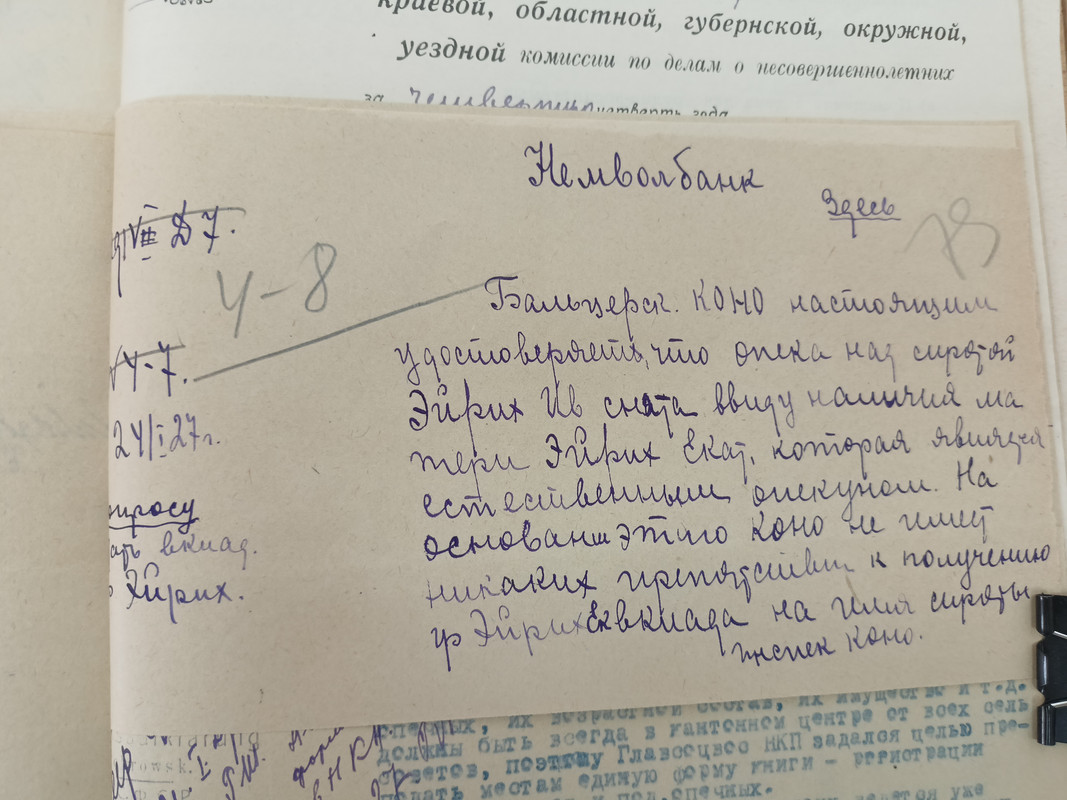 краевой, областной, губернской, окружной,
уездной комиссии по делам о несовершеннолетних
за четверть года
Немволбанк
Здесь
73
VIII Д 7.
4-8
4-7.
24/I 27г.
вклад.
Эйрих.
Бальцерск. КОНО настоящим
удостоверяет, что опека над сиротой
Эйрих Ив снята ввиду наличия ма
тери Эйрих Екат, которая является
естественным опекуном. На
основании этого КОНО не имеет
никаких препятствий к получению
гр Эйрих Ек вклада на имя сироты
Инспек КОНО.
их возрастной состав, их имущество и т.д.
должны быть всегда в кантонном центре от всех сель
советов, поэтому Главсоцвос НКП задался целью пре-
подать местам единую форму книги - регистрации